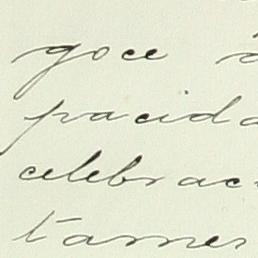 goce a
pacida
celebrac
tames